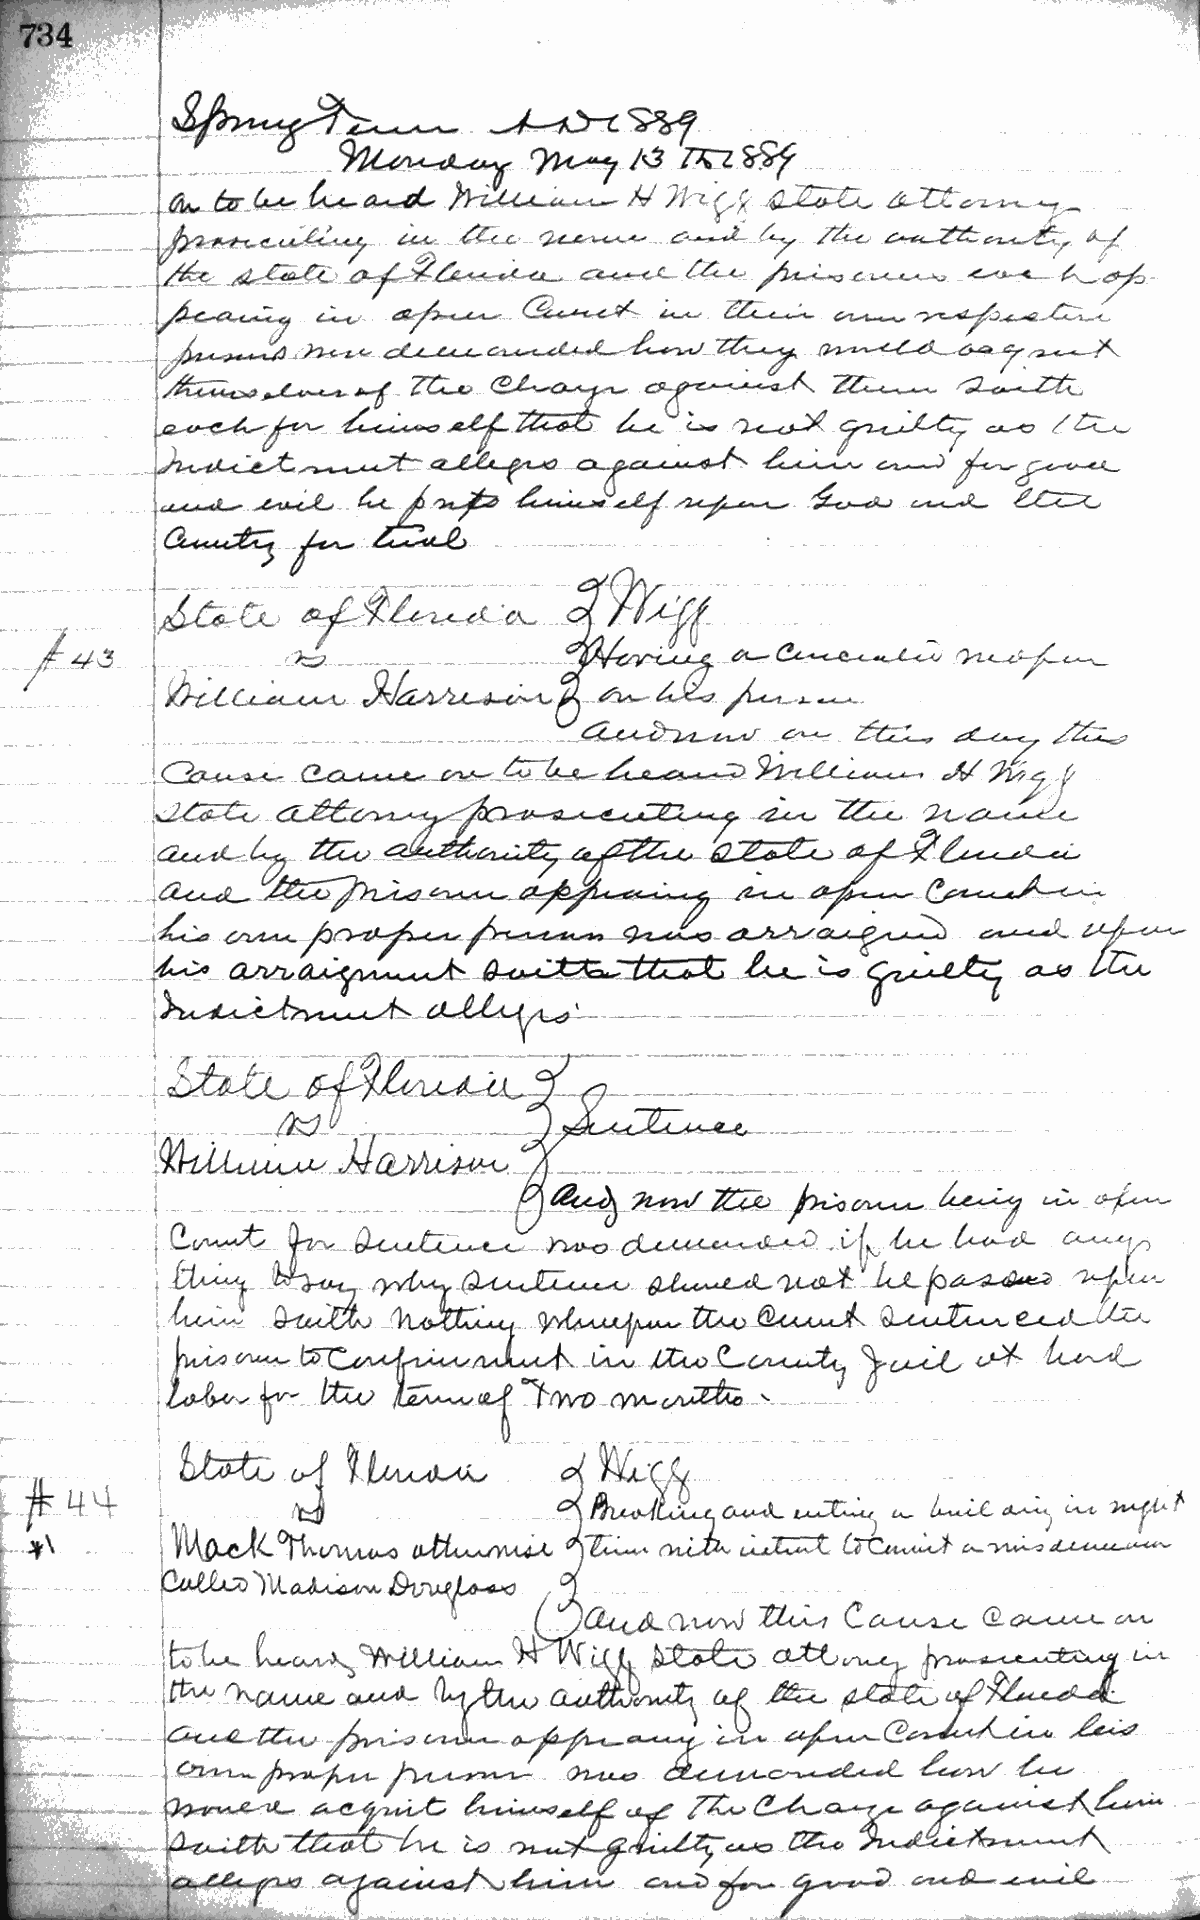 734
Spring Term A D 1889
Monday May 13 Th 1889
on to be heard William H Wigg state attorney
prosecuting in the name and by the authority of
the state of Florida and the prisoners each ap
pearing in open Court in their own respective
persons were demanded how they would acquit
themselves of the Charge against them saith
each for himself that he is not guilty as the
Indictment alleges against him and for good
and evil he puts himself upon God and the
Country for trial
State of Florida } Wigg
#43 vs } Having a concealed weapon
William Harrison } on his person
And now on this day this
Cause came on to be heard William H Wigg
State Attorney prosecuting in the name
and by the authority of the State of Florida
and the Prisoner appearing in open Court in
his own proper person was arraigned and upon
his arraignment saith that he is guilty as the
Indictment alleges
State of Florida }
vs } Sentence
William Harrison }
} And now the prisoner being in open
Court for sentence was demanded if he had any
thing to say why sentence should not be passed upon
him saith Nothing whereupon the Court sentenced the
prisoner to confinement in the County Jail at hard
labor for the term of Two months.
State of Florida } Wigg
#44 vs } Breaking and entering a building in night
*1 Mack Thomas otherwise } time with intent to commit a misdemeanor
Called Madison Douglass }
} And now this Cause came on
to be heard, William H Wigg state attorney prosecuting in
the name and by the authority of the state of Florida
and the prisoner appearing in open Court in his
own proper person was demanded how he
would acquit himself of the Charge against him
saith that he is not guilty as the Indictment
alleges against him and for good and evil